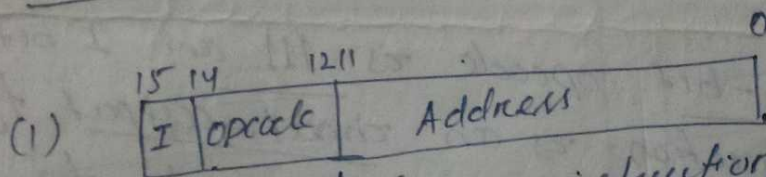 0
15 14 12 11
(1) I opcode Address